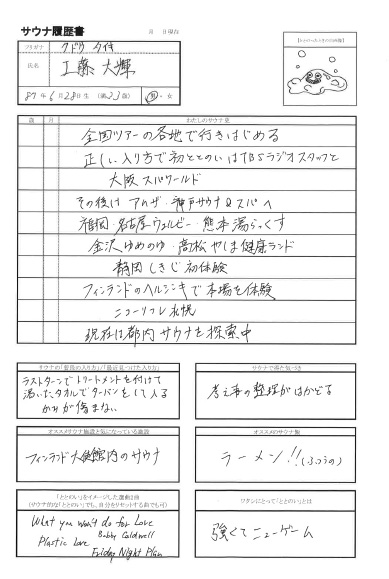 サウナ履歴書
月 日現在
フリガナ
クドウ タイキ
氏名
工藤 大輝
87年6月28日生(満33歳) 男・女
【ととのったときの自画像】
歳 月 わたしのサウナ史
全国ツアーの各地で行きはじめる
正しい入り方で初ととのいはTBSラジオスタッフと
大阪 スパワールド
その後は アムザ・神戸サウナ&スパへ
福岡・名古屋ウェルビー・熊本湯らっくす
金沢ゆめのゆ・高松やしま健康ランド
静岡しきじ初体験
フィンランドのヘルシンキで本場を体験
ニコーリフレ札幌
現在は都内サウナを探索中
サウナの「普段の入り方」/「最近見つけた入り方」
ラストターンでトリートメントを付けて
濡れたタオルでターバンをして入る
かみが傷まない
サウナで得た気づき
考え事の整理がはかどる
オススメサウナ施設と気になっている施設
フィンランド大使館内のサウナ
オススメのサウナ飯
ラーメン!!(ふつうの)
「ととのい」をイメージした選曲2曲
(サウナ的な「ととのい」でも、自分をリセットする曲でも可)
What you won't do for Love
Bobby Caldwell
Plastic Love
Friday Night Plans
ワタシにとって「ととのい」とは
強くてニューゲーム